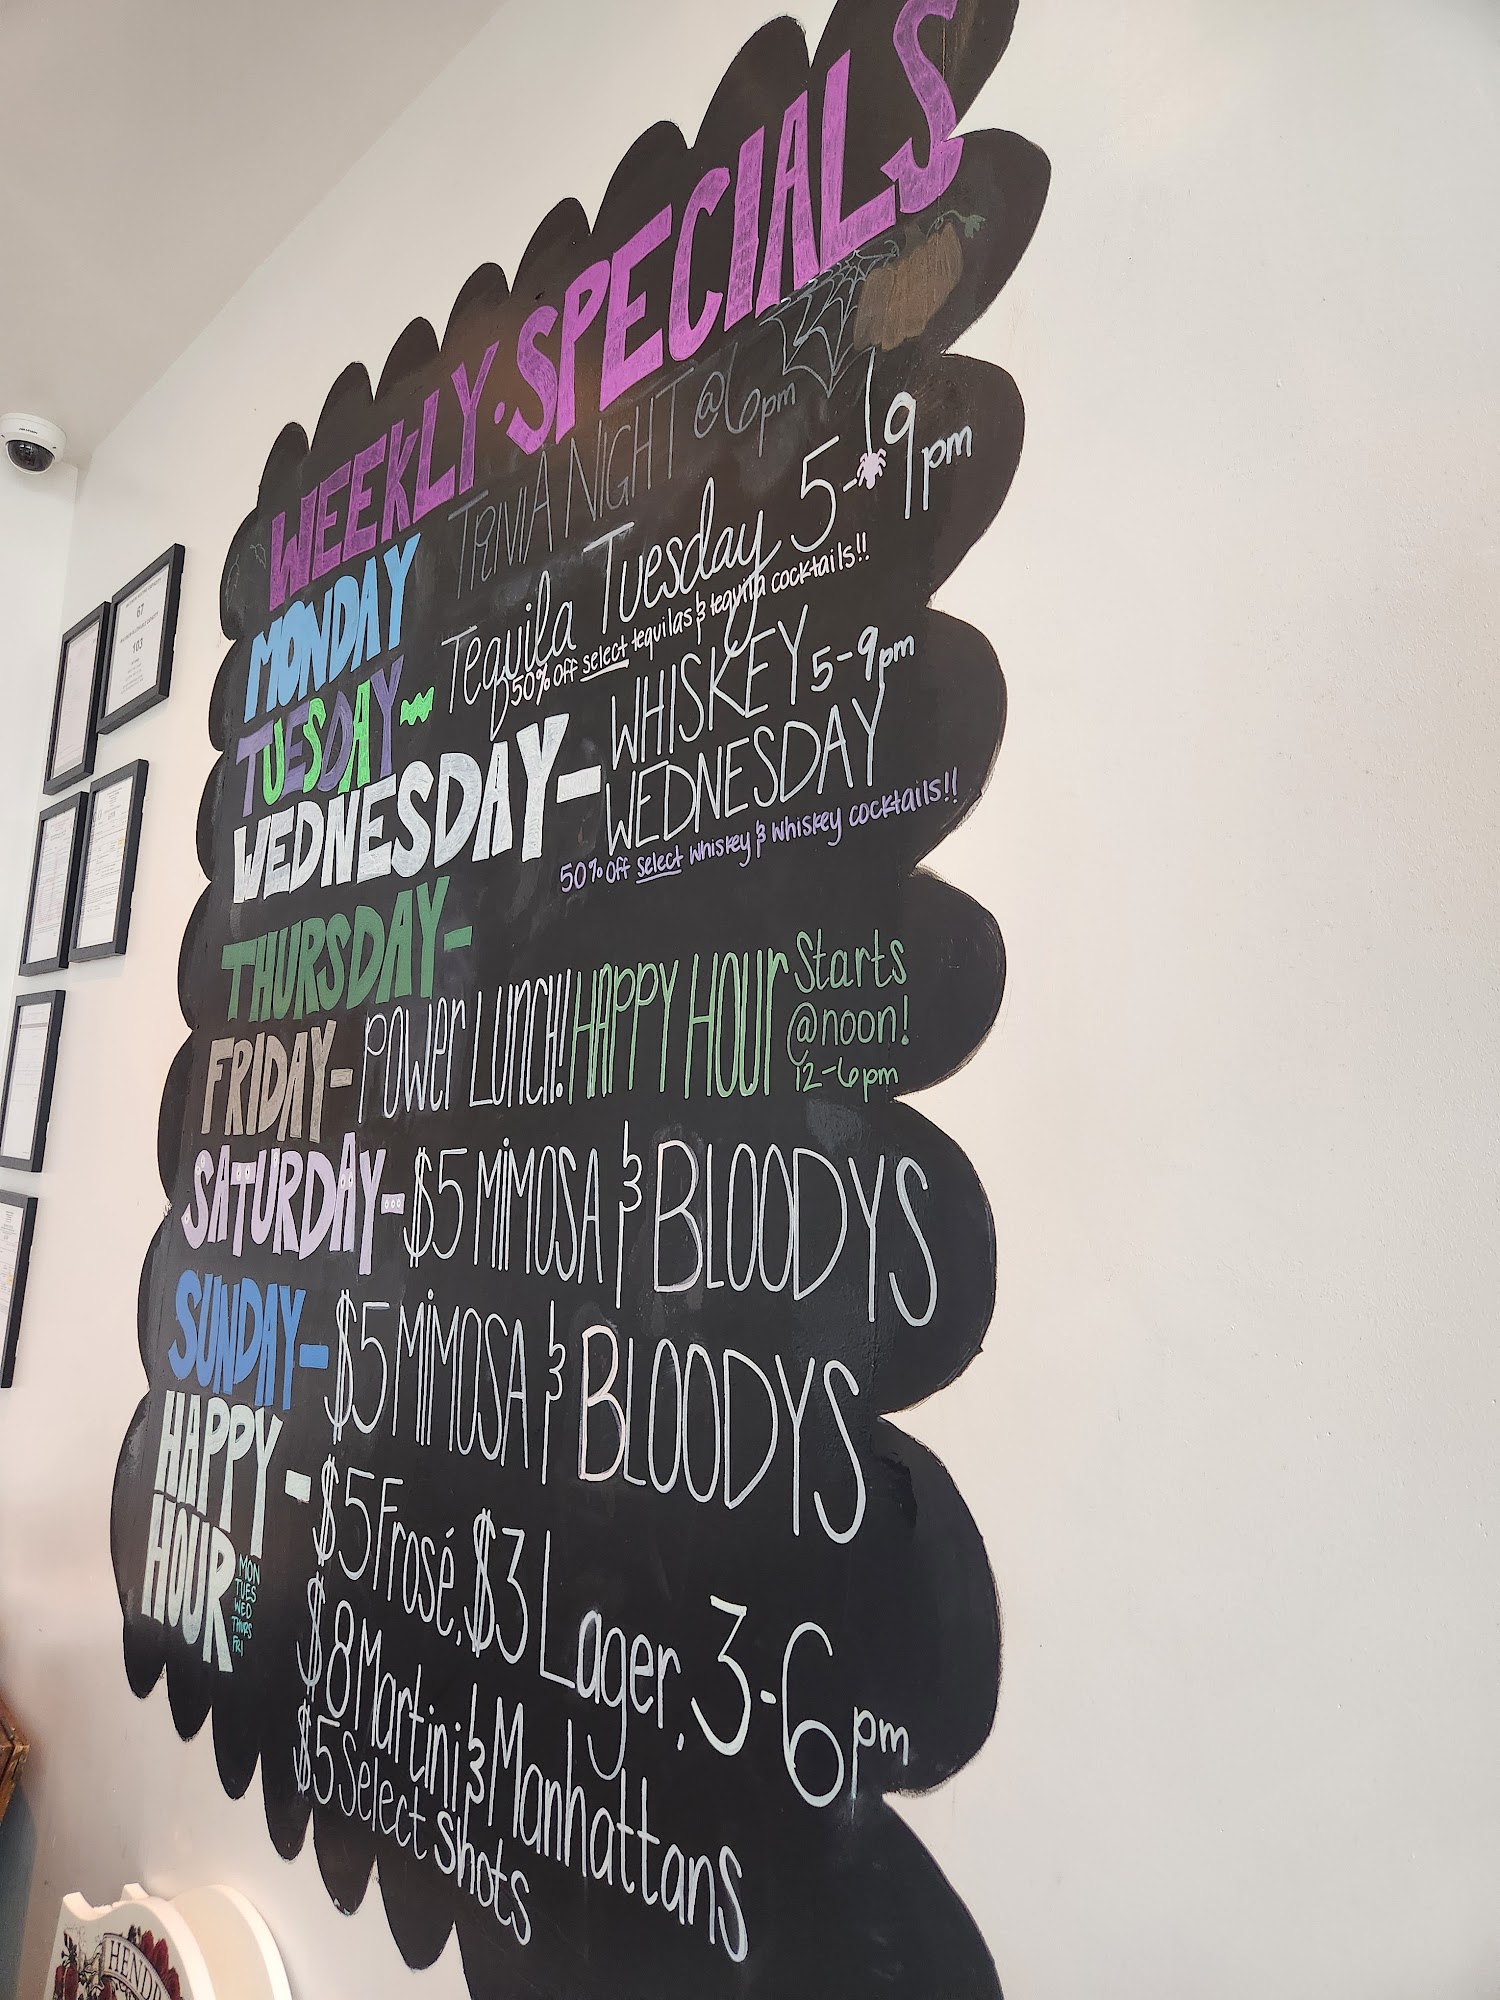 WEEKLY·SPECIALS
MONDAY TRIVIA NIGHT @ 6pm
TUESDAY~ Tequila Tuesday 5-9pm
50% off select tequilas & tequila cocktails!!
WEDNESDAY- WHISKEY 5-9pm
WEDNESDAY
50% off select whiskey & whiskey cocktails!!
THURSDAY-
FRIDAY- POWER LUNCH! HAPPY HOUR Starts
@noon!
12-6pm
SATURDAY- $5 MIMOSA & BLOODYS
SUNDAY- $5 MIMOSA & BLOODYS
HAPPY HOUR - $5 Frosé, $3 Lager, 3-6pm
MON
TUES
WED
THURS
FRI
$8 Martini & Manhattans
$5 Select Shots
67
103